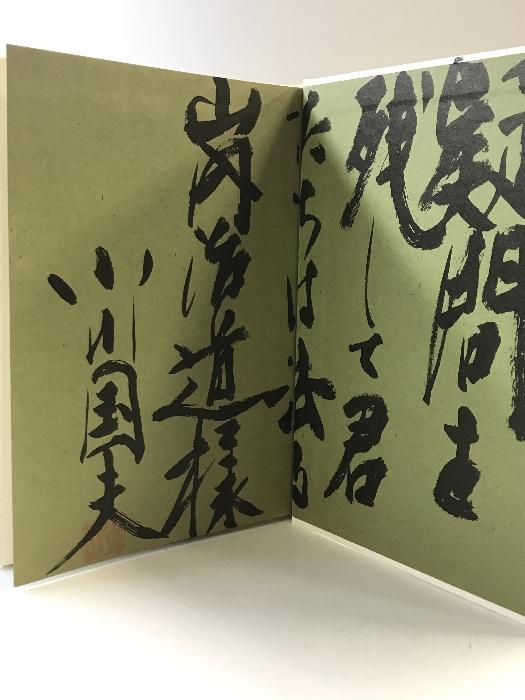 疑問を
残して君
たちは
治道様
小川国夫